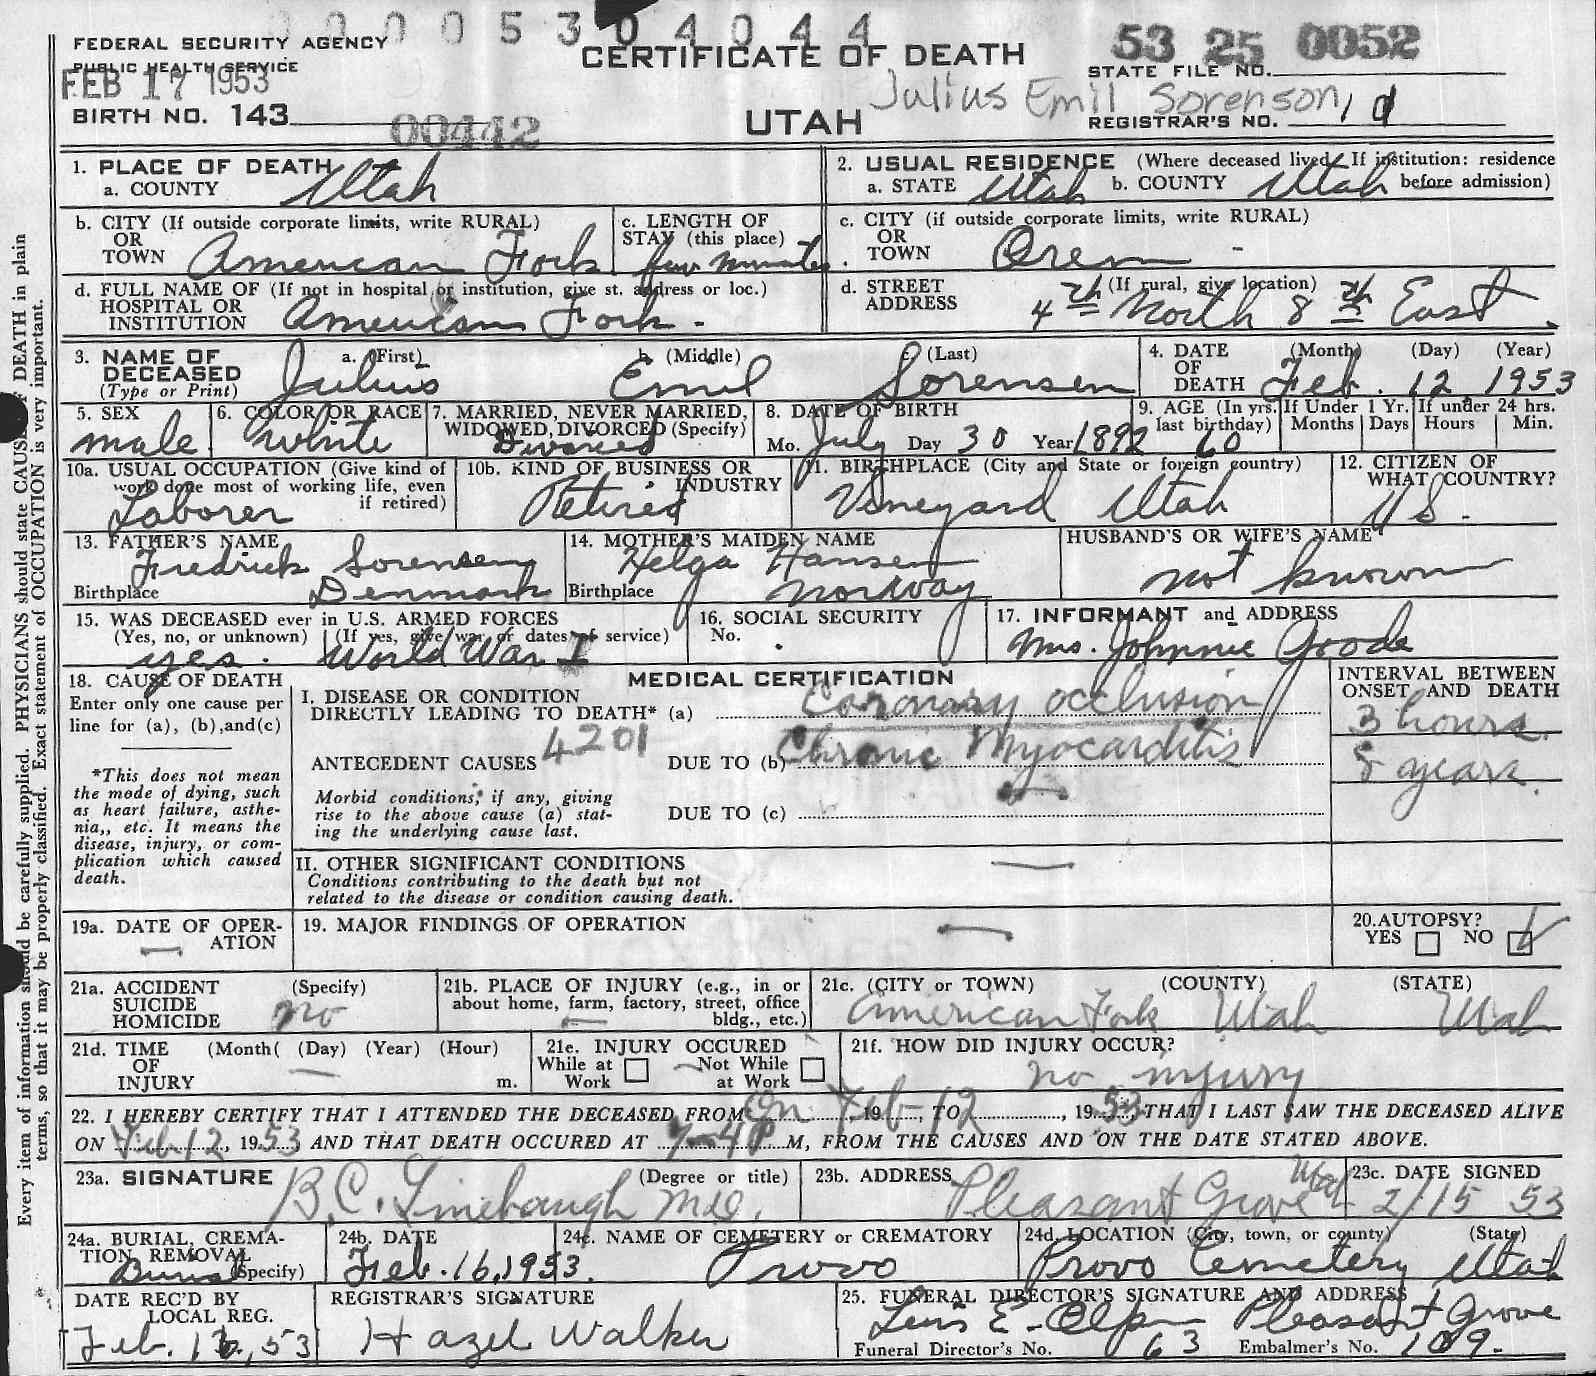 0 0 0 0 5 3 0 4 0 4 4
FEDERAL SECURITY AGENCY
PUBLIC HEALTH SERVICE
FEB 17 1953
CERTIFICATE OF DEATH
53 25 0052
STATE FILE NO.
Julius Emil Sorenson
BIRTH NO. 143
00442
UTAH
REGISTRAR'S NO.
1. PLACE OF DEATH
a. COUNTY Utah
2. USUAL RESIDENCE (Where deceased lived. If institution: residence before admission)
a. STATE Utah b. COUNTY Utah
b. CITY (If outside corporate limits, write RURAL)
OR TOWN American Fork
c. LENGTH OF STAY (this place) few minutes.
c. CITY (if outside corporate limits, write RURAL)
OR TOWN Orem -
d. FULL NAME OF (If not in hospital or institution, give st. address or loc.)
HOSPITAL OR INSTITUTION American Fork -
d. STREET ADDRESS (If rural, give location)
4th North 8th East
3. NAME OF DECEASED (Type or Print)
a. (First) Julius b. (Middle) Emil c. (Last) Sorensen
4. DATE OF DEATH (Month) (Day) (Year)
Feb. 12 1953
5. SEX male
6. COLOR OR RACE White
7. MARRIED, NEVER MARRIED, WIDOWED, DIVORCED (Specify) Divorced
8. DATE OF BIRTH
Mo. July Day 30 Year 1892
9. AGE (In yrs. last birthday) 60
If Under 1 Yr. Months Days
If under 24 hrs. Hours Min.
10a. USUAL OCCUPATION (Give kind of work done most of working life, even if retired)
Laborer
10b. KIND OF BUSINESS OR INDUSTRY
Retired
11. BIRTHPLACE (City and State or foreign country)
Vineyard Utah
12. CITIZEN OF WHAT COUNTRY?
US.
13. FATHER'S NAME
Fredrick Sorensen
Birthplace Denmark
14. MOTHER'S MAIDEN NAME
Helga Hansen
Birthplace Norway
HUSBAND'S OR WIFE'S NAME
not known
15. WAS DECEASED ever in U.S. ARMED FORCES
(Yes, no, or unknown) (If yes, give war or dates of service)
yes. World War I
16. SOCIAL SECURITY No.
17. INFORMANT and ADDRESS
Mrs. Johnnie Goode
18. CAUSE OF DEATH
Enter only one cause per line for (a), (b), and (c)
*This does not mean the mode of dying, such as heart failure, asthenia,, etc. It means the disease, injury, or complication which caused death.
MEDICAL CERTIFICATION
INTERVAL BETWEEN ONSET AND DEATH
I. DISEASE OR CONDITION
DIRECTLY LEADING TO DEATH* (a) Coronary occlusion
3 hours.
4201
ANTECEDENT CAUSES DUE TO (b) Chronic Myocarditis
8 years.
Morbid conditions, if any, giving rise to the above cause (a) stating the underlying cause last.
DUE TO (c)
II. OTHER SIGNIFICANT CONDITIONS
Conditions contributing to the death but not related to the disease or condition causing death.
19a. DATE OF OPERATION
19. MAJOR FINDINGS OF OPERATION
20. AUTOPSY?
YES NO
21a. ACCIDENT SUICIDE HOMICIDE (Specify) no
21b. PLACE OF INJURY (e.g., in or about home, farm, factory, street, office bldg., etc.)
21c. (CITY or TOWN) (COUNTY) (STATE)
American Fork Utah Utah
21d. TIME OF INJURY (Month( (Day) (Year) (Hour) m.
21e. INJURY OCCURED
While at Work Not While at Work
21f. HOW DID INJURY OCCUR?
no injury
22. I HEREBY CERTIFY THAT I ATTENDED THE DECEASED FROM On Feb-12, 19 TO, 1953 THAT I LAST SAW THE DECEASED ALIVE
ON Feb 12, 1953 AND THAT DEATH OCCURED AT M, FROM THE CAUSES AND ON THE DATE STATED ABOVE.
23a. SIGNATURE (Degree or title)
B.C. Linebaugh M.D.
23b. ADDRESS
Pleasant Grove Utah
23c. DATE SIGNED
2/15 53
24a. BURIAL, CREMATION, REMOVAL (Specify) Burial
24b. DATE
Feb. 16, 1953.
24c. NAME OF CEMETERY or CREMATORY
Provo
24d. LOCATION (City, town, or county) (State)
Provo Cemetery Utah
DATE REC'D BY LOCAL REG.
Feb. 16, 53
REGISTRAR'S SIGNATURE
Hazel Walker
25. FUNERAL DIRECTOR'S SIGNATURE AND ADDRESS
E. Olpin Pleasant Grove
Funeral Director's No. 63 Embalmer's No. 109.
Every item of information should be carefully supplied. PHYSICIANS should state CAUSE OF DEATH in plain
terms, so that it may be properly classified. Exact statement of OCCUPATION is very important.